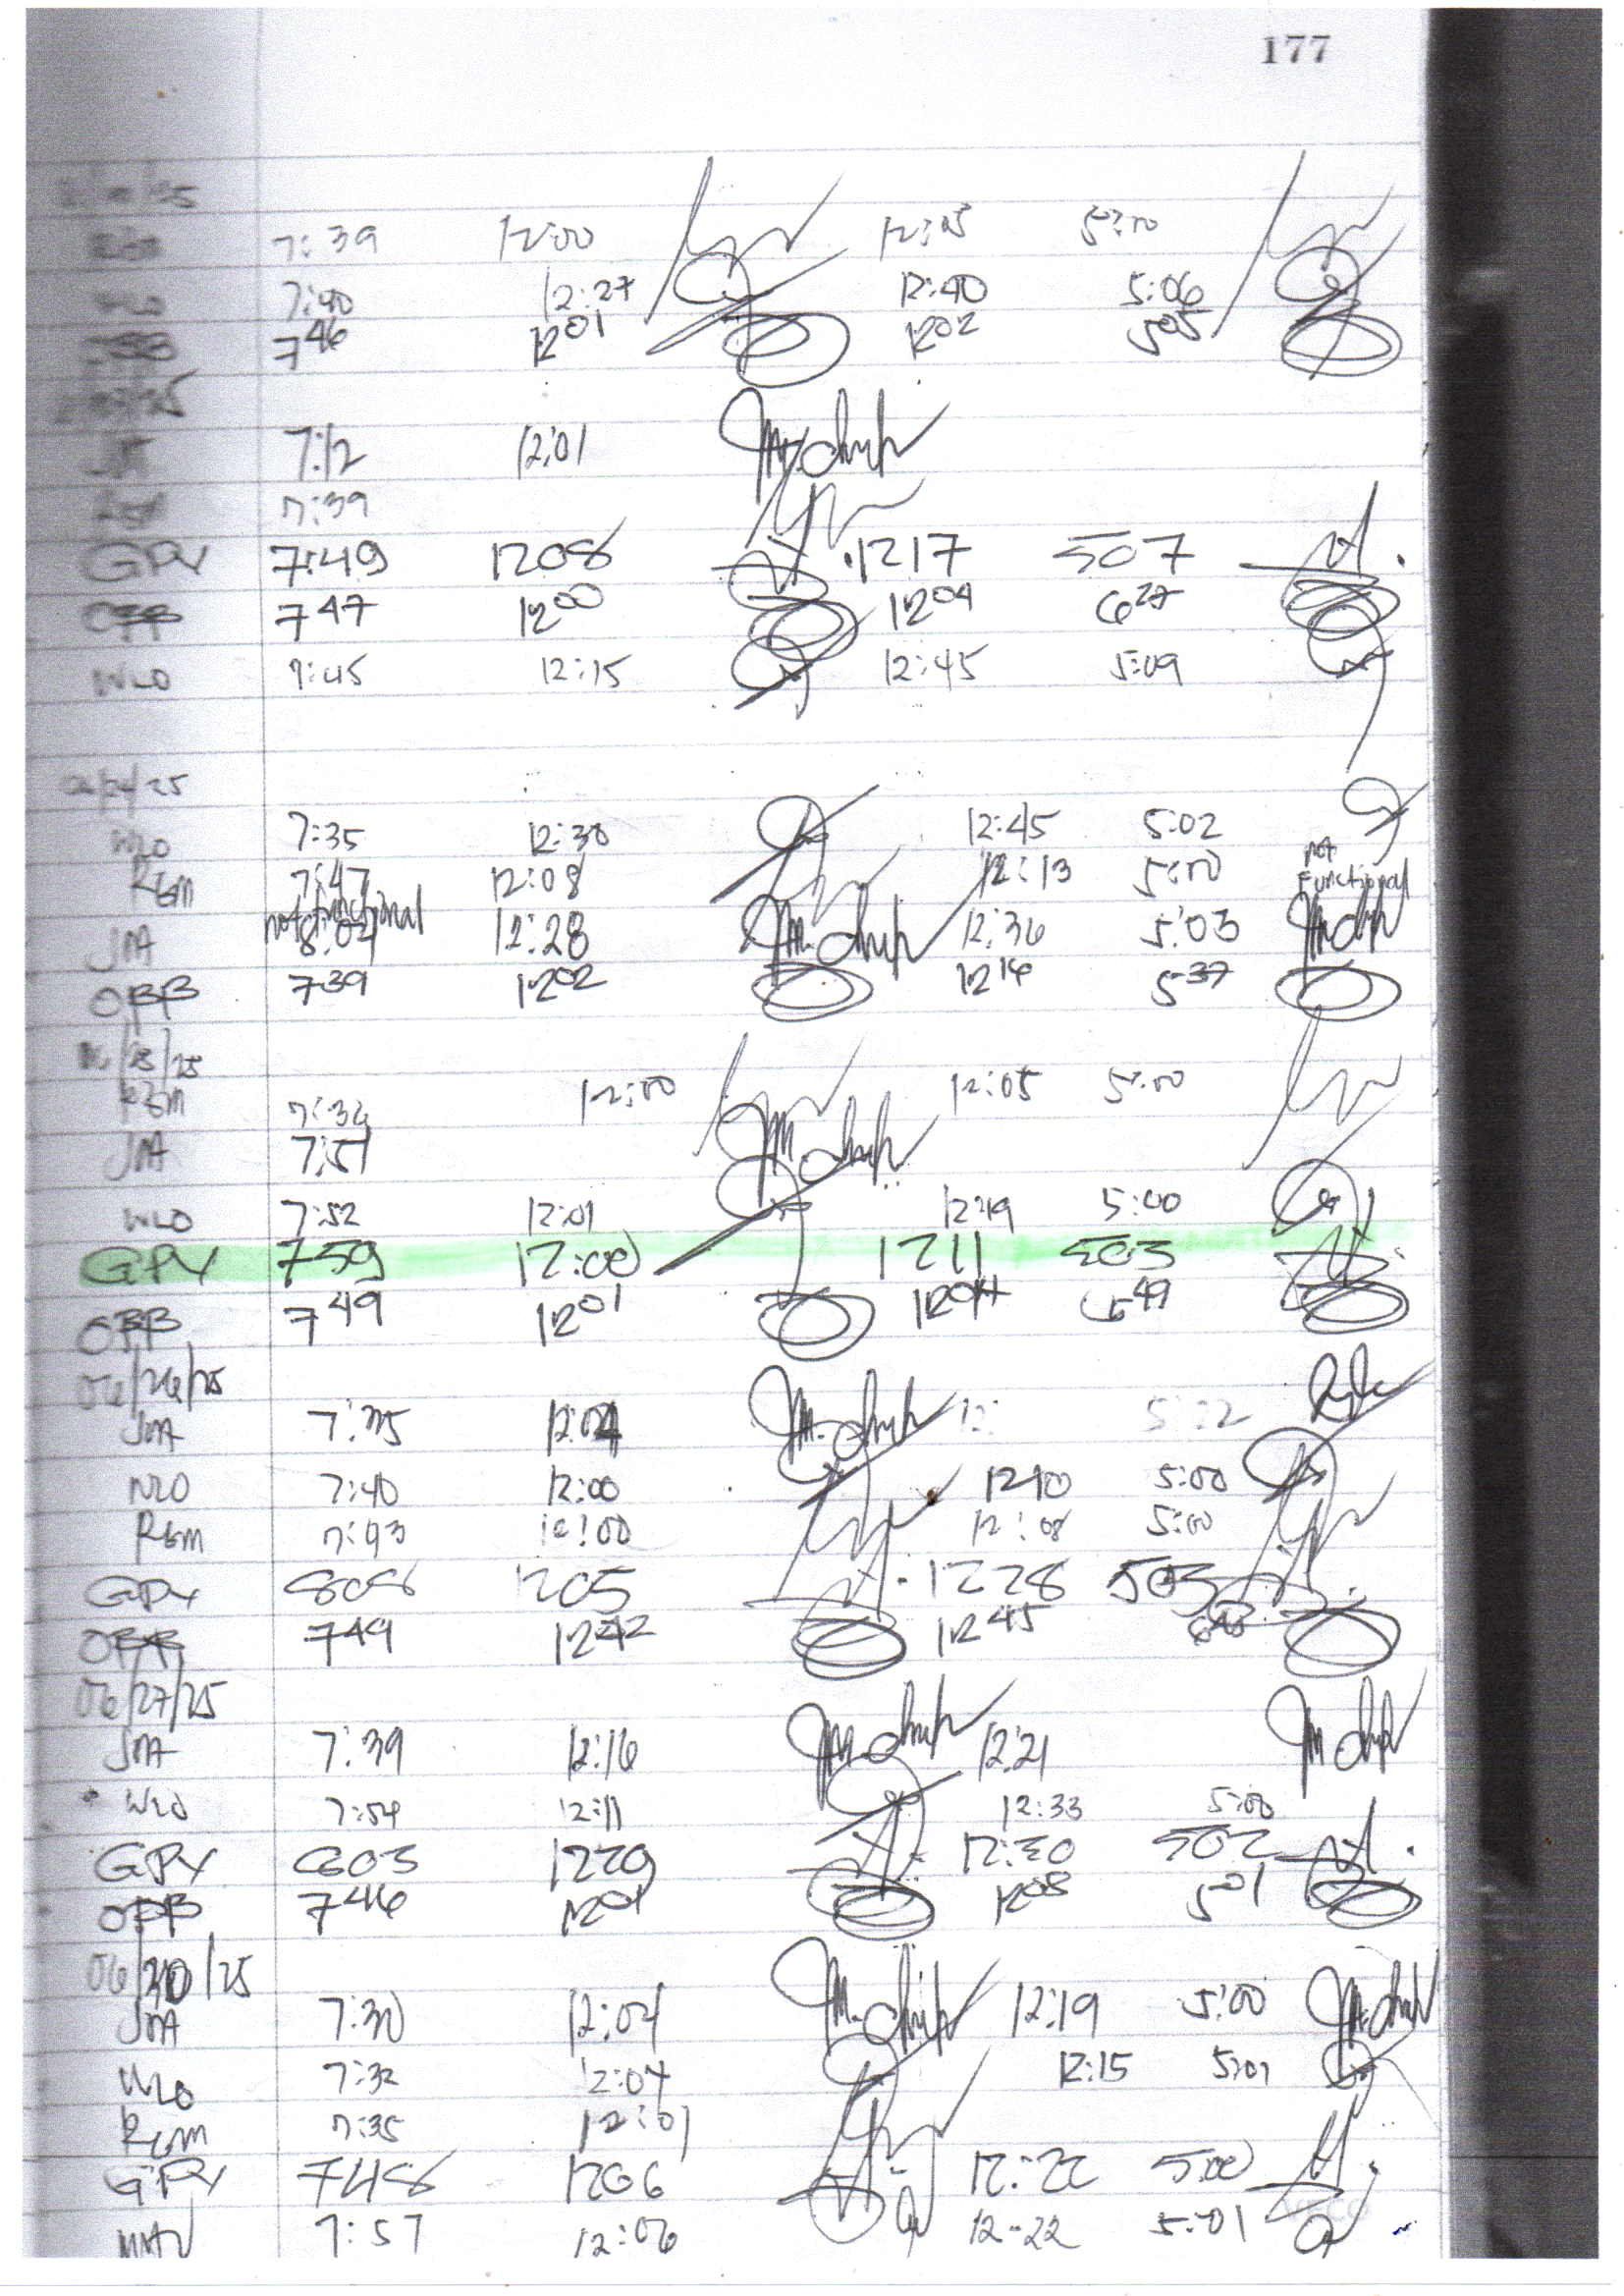 177
7:39 12:00 12:05 5:00
WLO 7:40 12:27 12:40 5:06
7 46 12 01 12 02 5 05
JMA 7:12 12:01
7:39
GPY 7:49 1208 1217 507
OBB 7 47 12 00 12 04 6 27
WLO 7:45 12:15 12:45 5:09
06/24/25
WLO 7:35 12:30 12:45 5:02
RGM 7:47 12:08 12:13 5:00 not Functional
not functional
JMA 8:02 12:28 12:36 5:03
OBB 7 39 12 02 12 16 5 37
06/25/25
RGM 7:36 12:00 12:05 5:00
JMA 7:51
WLO 7:52 12:01 12:19 5:00
GPY 759 12:00 1211 503
OBB 7 49 12 01 12 04 49
06/26/25
JMA 7:35 12:04 12:
WLO 7:40 12:00 1210 5:00
RGM 7:43 12:00 12:08 5:00
GPY 808 1205 1228 503
OBB 7 49 12 42 12 45
06/27/25
JMA 7:39 12:16 12:21
WLO 7:54 12:11 12:33 5:00
GPY 803 1229 12:30 502
OBB 7 46 12 01 12 03 5 01
06/30/25
JMA 7:30 12:04 12:19 5:00
WLO 7:32 12:04 12:15 5:01
RGM 7:35 12:01
GPY 748 1206 12:22 500
7:57 12:06 12-22 5:01